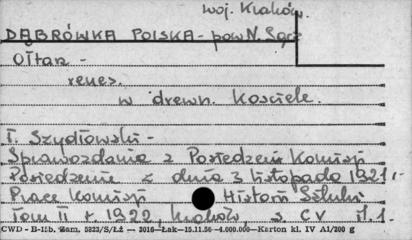 woj. Kraków.
DĄBRÓWKA POLSKA - pow N. Sącz
Ołtarz -
renes.
w drewn. Kościele.
T. Szydłowski -
Sprawozdania z Posiedzeń Komisji
Posiedzenie z dnia 3 listopada 1921 r.
Prace Komisji Historii Sztuki
Tom II r. 1922, Kraków, s. CV il. 1.
CWD - B-15b. Zam. 5823/S/ŁŻ — 3016—Łak—15.11.56 —4.000.000—Karton kl. IV A1/200 g